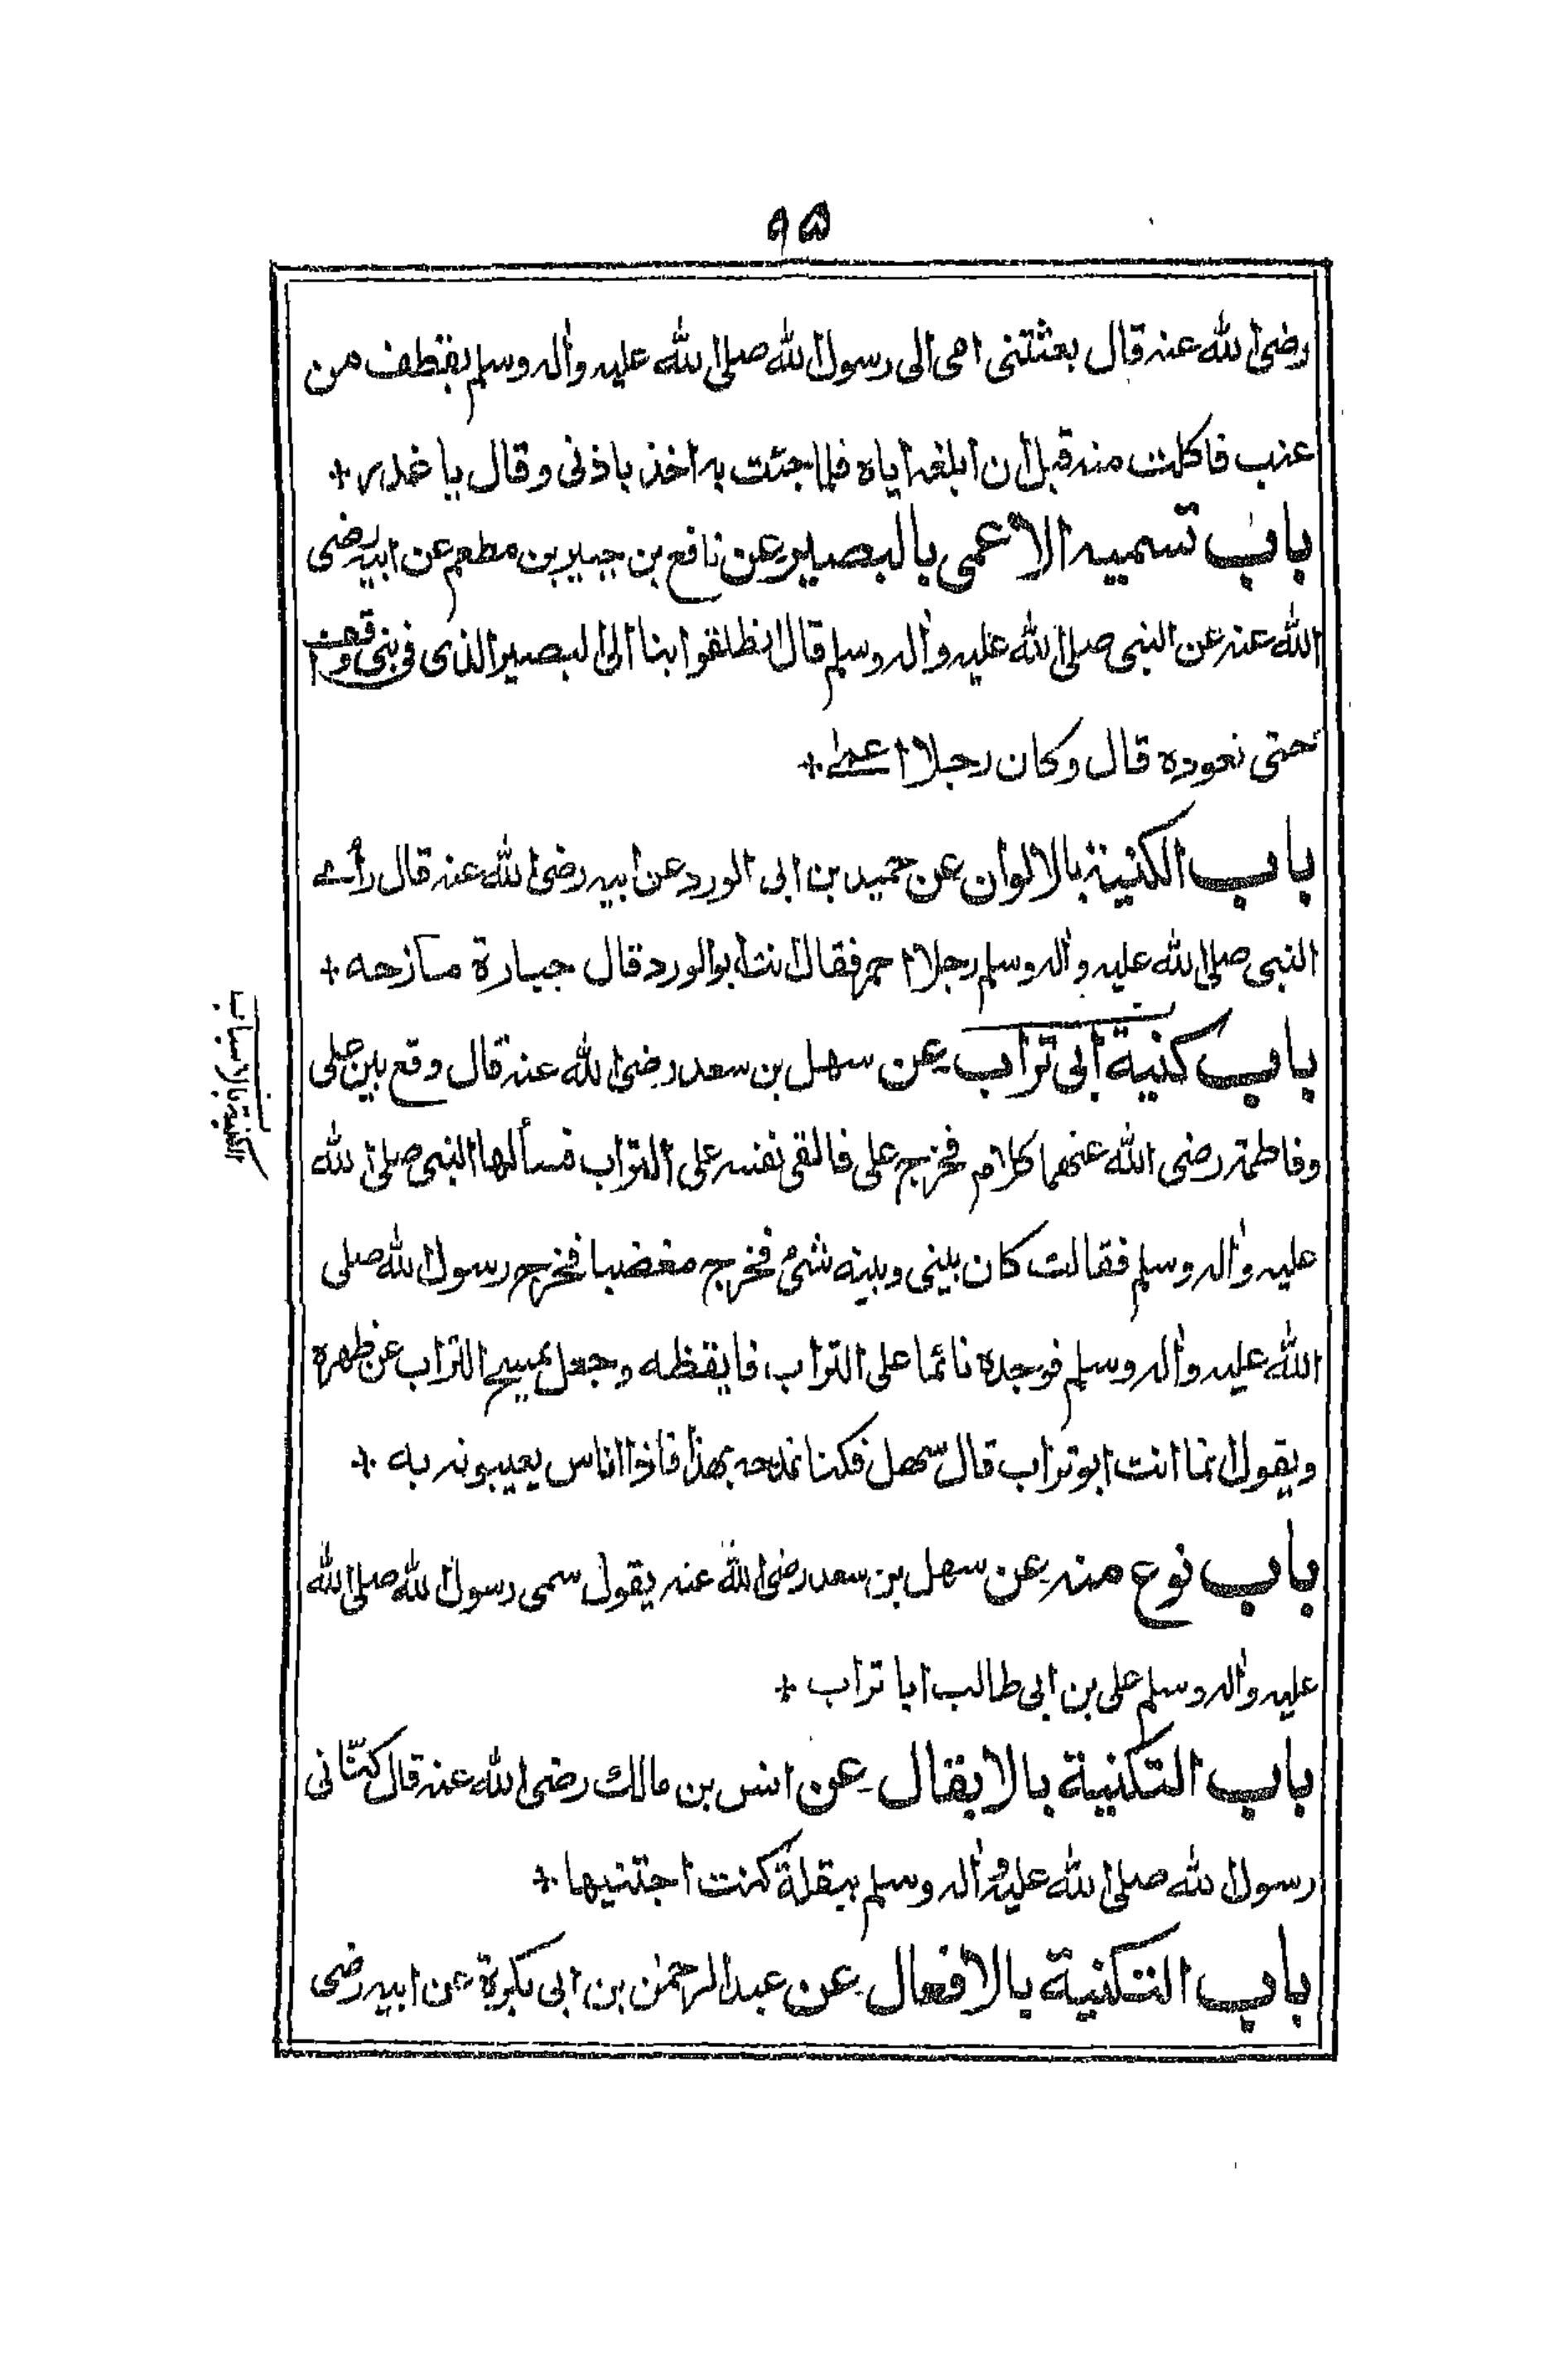 ٩٥
رضی الله عنه قال بعثتنی امی الی رسول الله صلی الله علیه واٰله وسلم بقطف من
عنب فاکلت منه قبل ان ابلغه ایاه فلما جئت به اخذ باذنی وقال یا غدر +
باب تسمیه الاعمی بالبصیر عن نافع بن جبیر بن مطعم عن ابیه رضی
الله عنه عن النبی صلی الله علیه واٰله وسلم قال انطلقوا بنا الی البصیر الذی فی بنی
حتی نعوده قال وکان رجلا اعمے +
باب الکنیة بالالوان عن حمید بن ابی الورد عن ابیه رضی الله عنه قال رأے
النبی صلی الله علیه واٰله وسلم رجلا احمر فقال انت ابوالورد قال جبارة مازحه +
باب کنیة ابی تراب عن سهل بن سعد رضی الله عنه قال وقع بین علی
وفاطمة رضی الله عنهما کلام فخرج علی فالقی نفسه علی التراب فسألها النبی صلی الله
علیه واٰله وسلم فقالت کان بینی وبینه شیٔ فخرج مغضبا فخرج رسول الله صلی
الله علیه واٰله وسلم فوجده نائما علی التراب فایقظه وجعل یمسح التراب عن ظهره
ویقول انما انت ابو تراب قال سهل فکنا نمدحه بهذا فاذا اناس یعیبونه به +
باب نوع منه عن سهل بن سعد رضی الله عنه یقول سمی رسول الله صلی الله
علیه واٰله وسلم علی بن ابی طالب ابا تراب +
باب التکنیة بالابقال عن انس بن مالك رضی الله عنه قال کنّانی
رسول الله صلی الله علیه واٰله وسلم ببقلة کنت اجتنیها +
باب التکنیة بالافعال عن عبدالرحمٰن بن ابی بکرة عن ابیه رضی
التکنیة بالاسباب